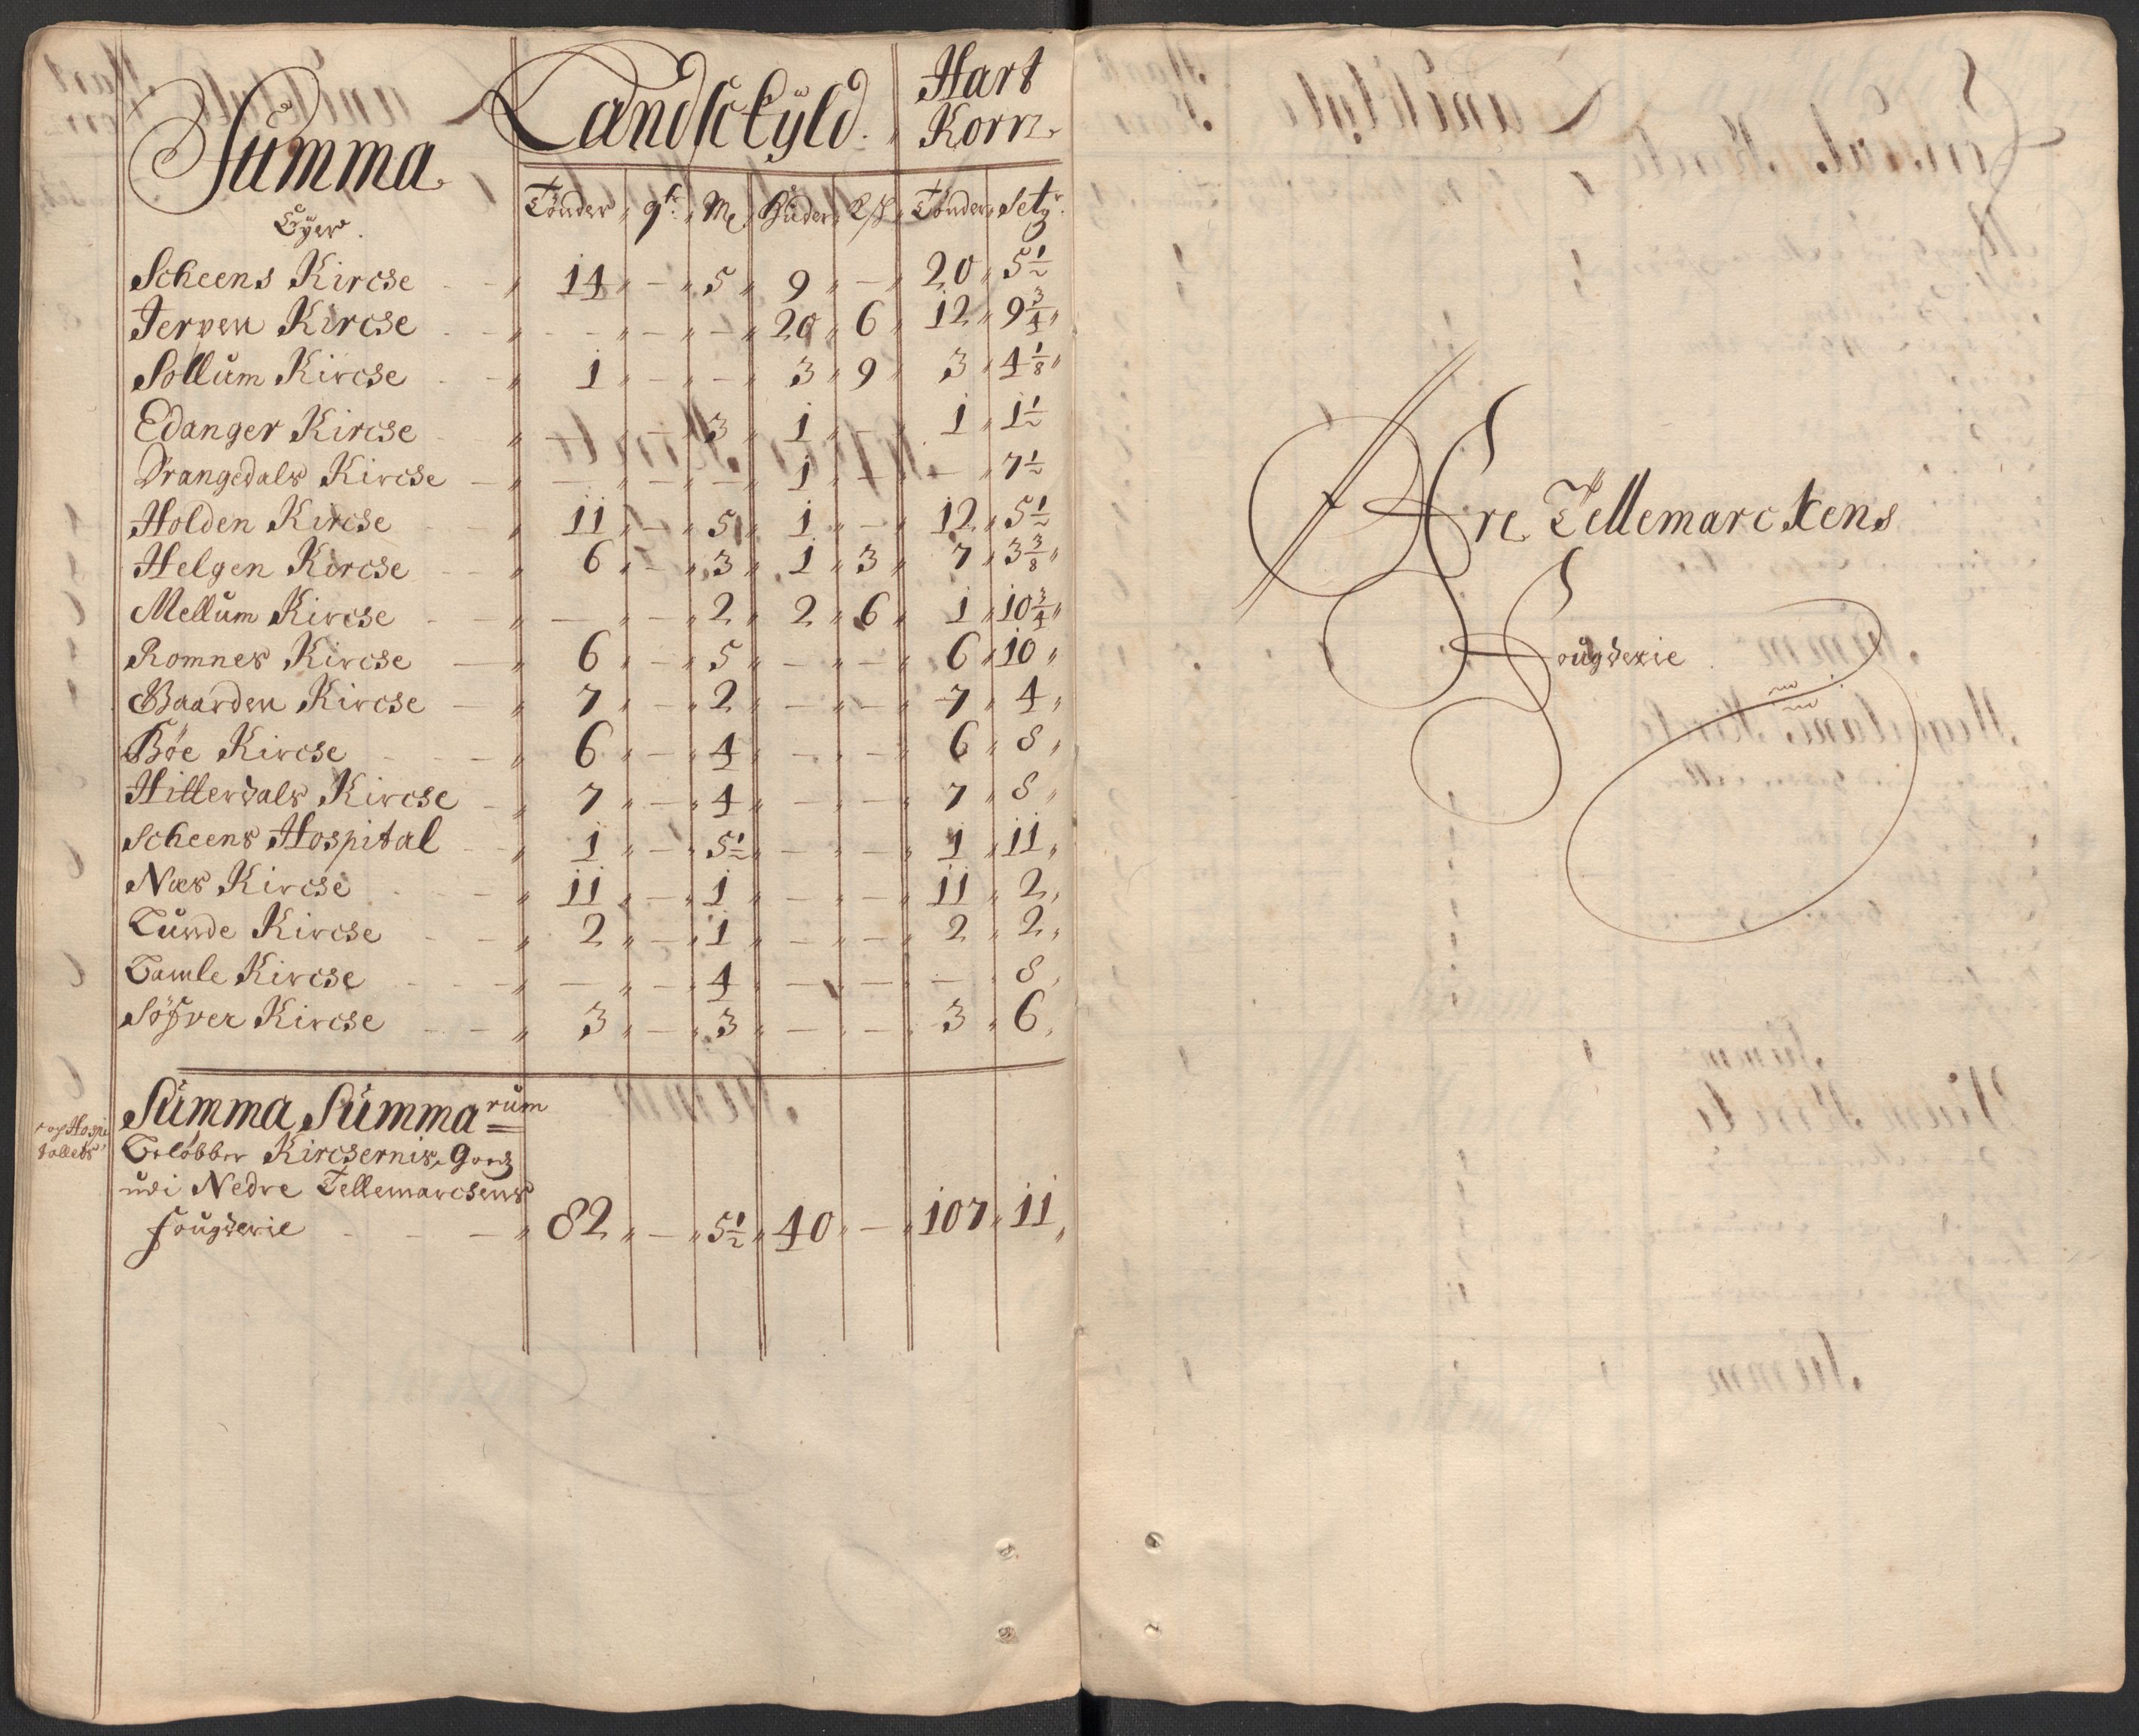 Summa Landsckÿld. Hart Korn
Eÿer. Tönder qr. Me Huder L/S Tönder Setg.r
Scheens Kircke 14 - 5 9 - 20 5 1/2
Jerpen Kircke - - - 20 6 12 9 3/4
Sollum Kircke 1 - - 3 9 3 4 1/8
Edanger Kircke - - 3 1 - 1 1 1/2
Drangedals Kircke - - - 1 - - 7 1/2
Holden Kircke 11 - 5 1 - 12 5 1/2
Helgen Kircke 6 - 3 1 3 7 3 3/8
Mellum Kircke - - 2 2 6 1 10 3/4
Romnes Kircke 6 - 5 - - 6 10
Baarden Kircke 7 - 2 - - 7 4
Böe Kircke 6 - 4 - - 6 8
Hitterdals Kircke 7 - 4 - - 7 8
Scheens Hospital 1 - 5 1/2 - - 1 11
Næs Kircke 11 - 1 - - 11 2
Lunde Kircke 2 - 1 - - 2 2
Bamle Kircke - - 4 - - - 8
Söfver Kircke 3 - 3 - - 3 6
Summa Summarum
og Hospi
tallets
Belöbber Kirckernis Goedz
udi Nedre Tellemarckens
fougderie 82 - 5 1/2 40 - 107 11
Øfre Tellemarckens
Fougderie